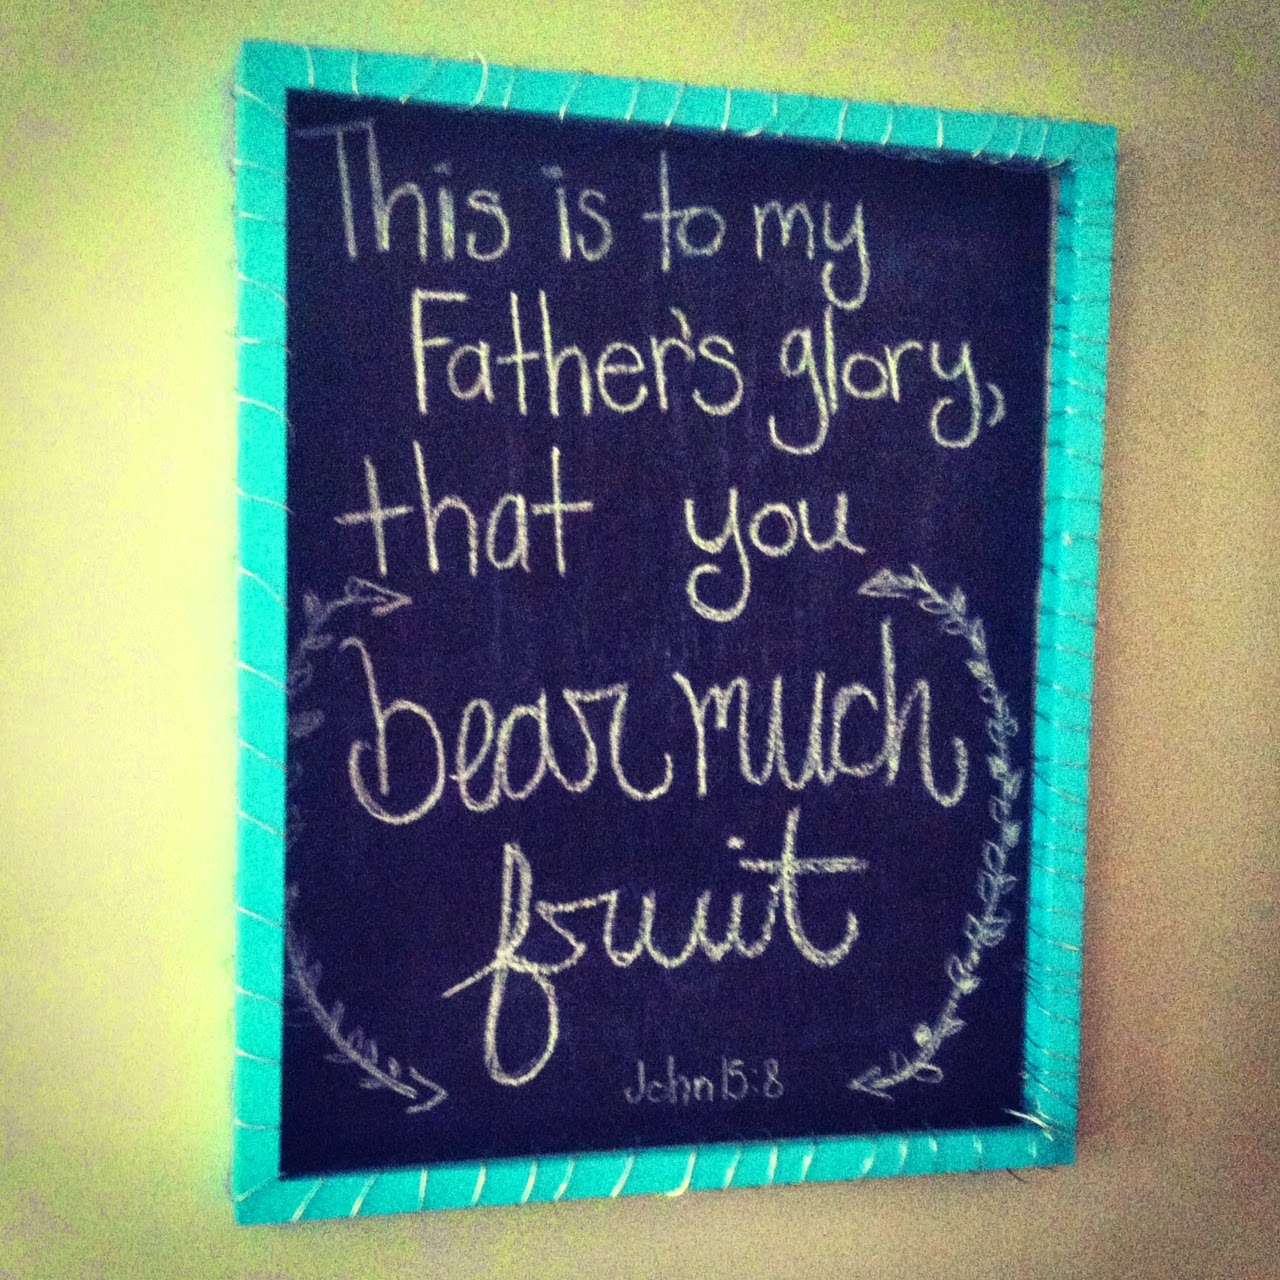 This is to my
Father's glory,
that you
bear much
fruit
John 15:8